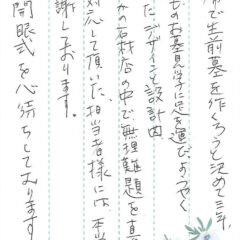 で生前墓を作ろうと決めて三年、
ものお墓見学に足を運び、ようやく
たデザインと設計図
かの石材店の中で、無理難題を真
対応して頂いた、担当者様には
謝しております。
開眼式を心待ちしております